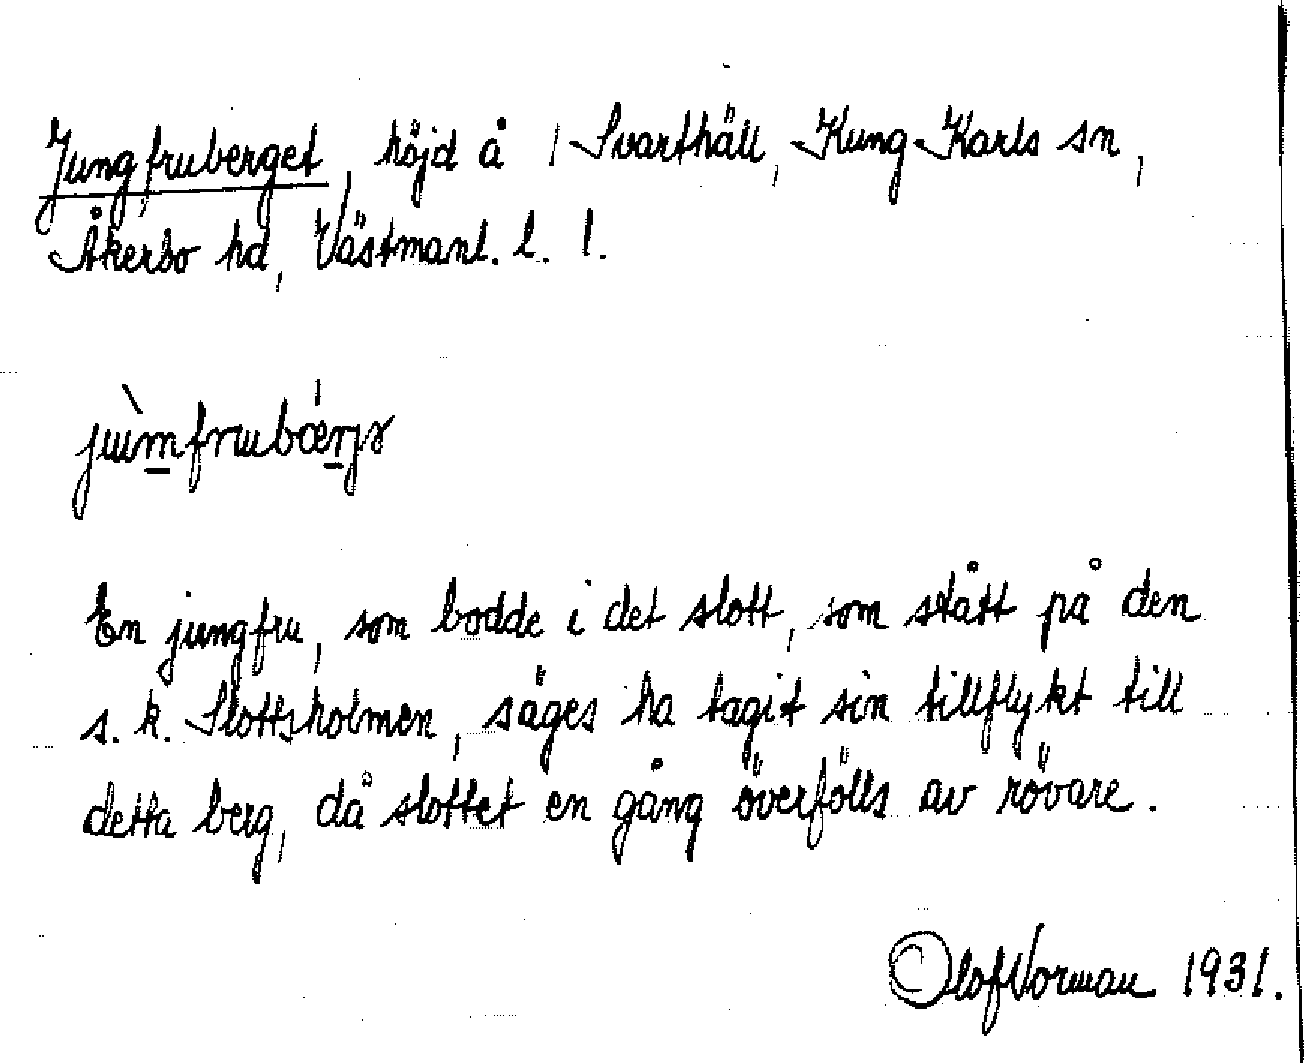 Jungfruberget, höjd å 1 Svarthäll, Kung-Karls sn,
Åkerbo hd, Västmanl. l. 1.
En jungfru, som bodde i det slott, som stått på den
s. k. Slottsholmen, säges ha tagit sin tillflykt till
detta berg, då slottet en gång överfölls av rövare.
Olof Norman 1931.